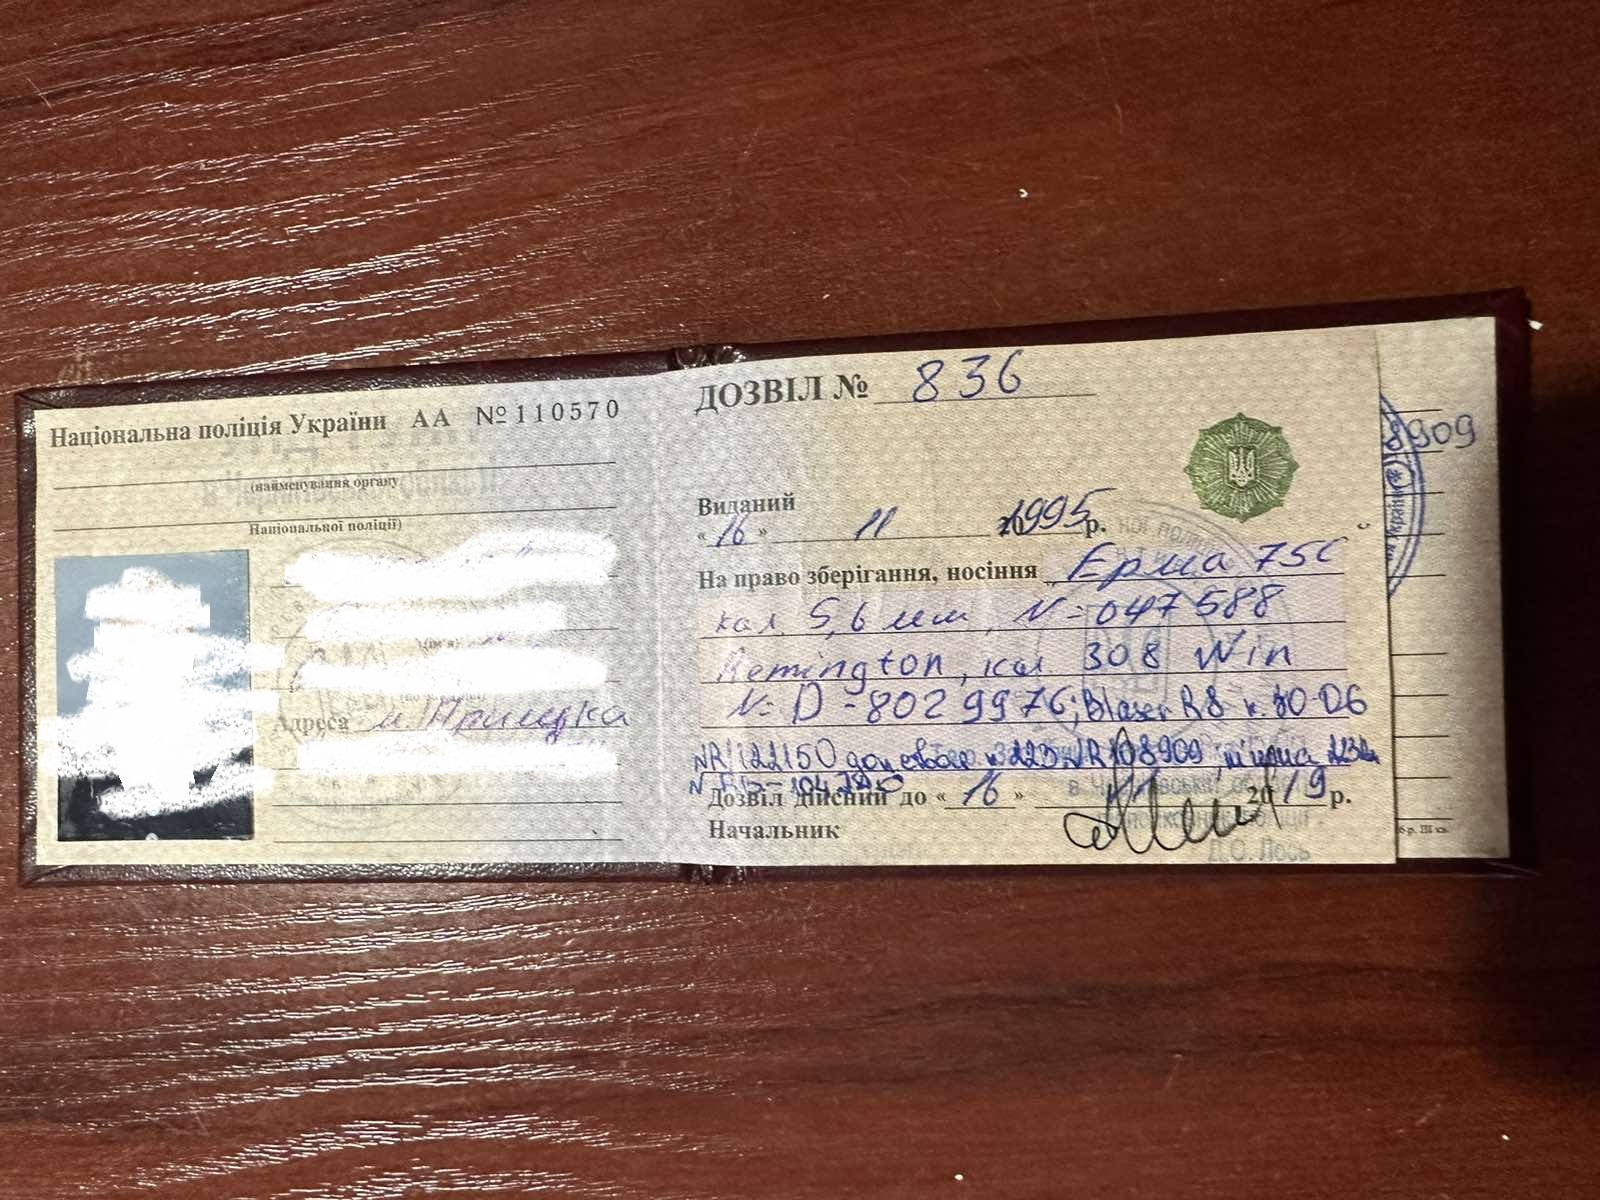 Національна поліція України АА № 110570
(найменування органу
Національної поліції)
Адреса м. Прилуки
ДОЗВІЛ № 836
Виданий
« 16 » 11 1995 р.
На право зберігання, носіння Ерма 75С
кал. 5,6 мм, N= 047588
Remington, кал. 308 Win
N= D-8029976; Blaser R8 к. 30-06
NR/122150 223 NR108909
Дозвіл дійсний до « 16 » 2019 р.
Начальник
Д.О. Лось
8909